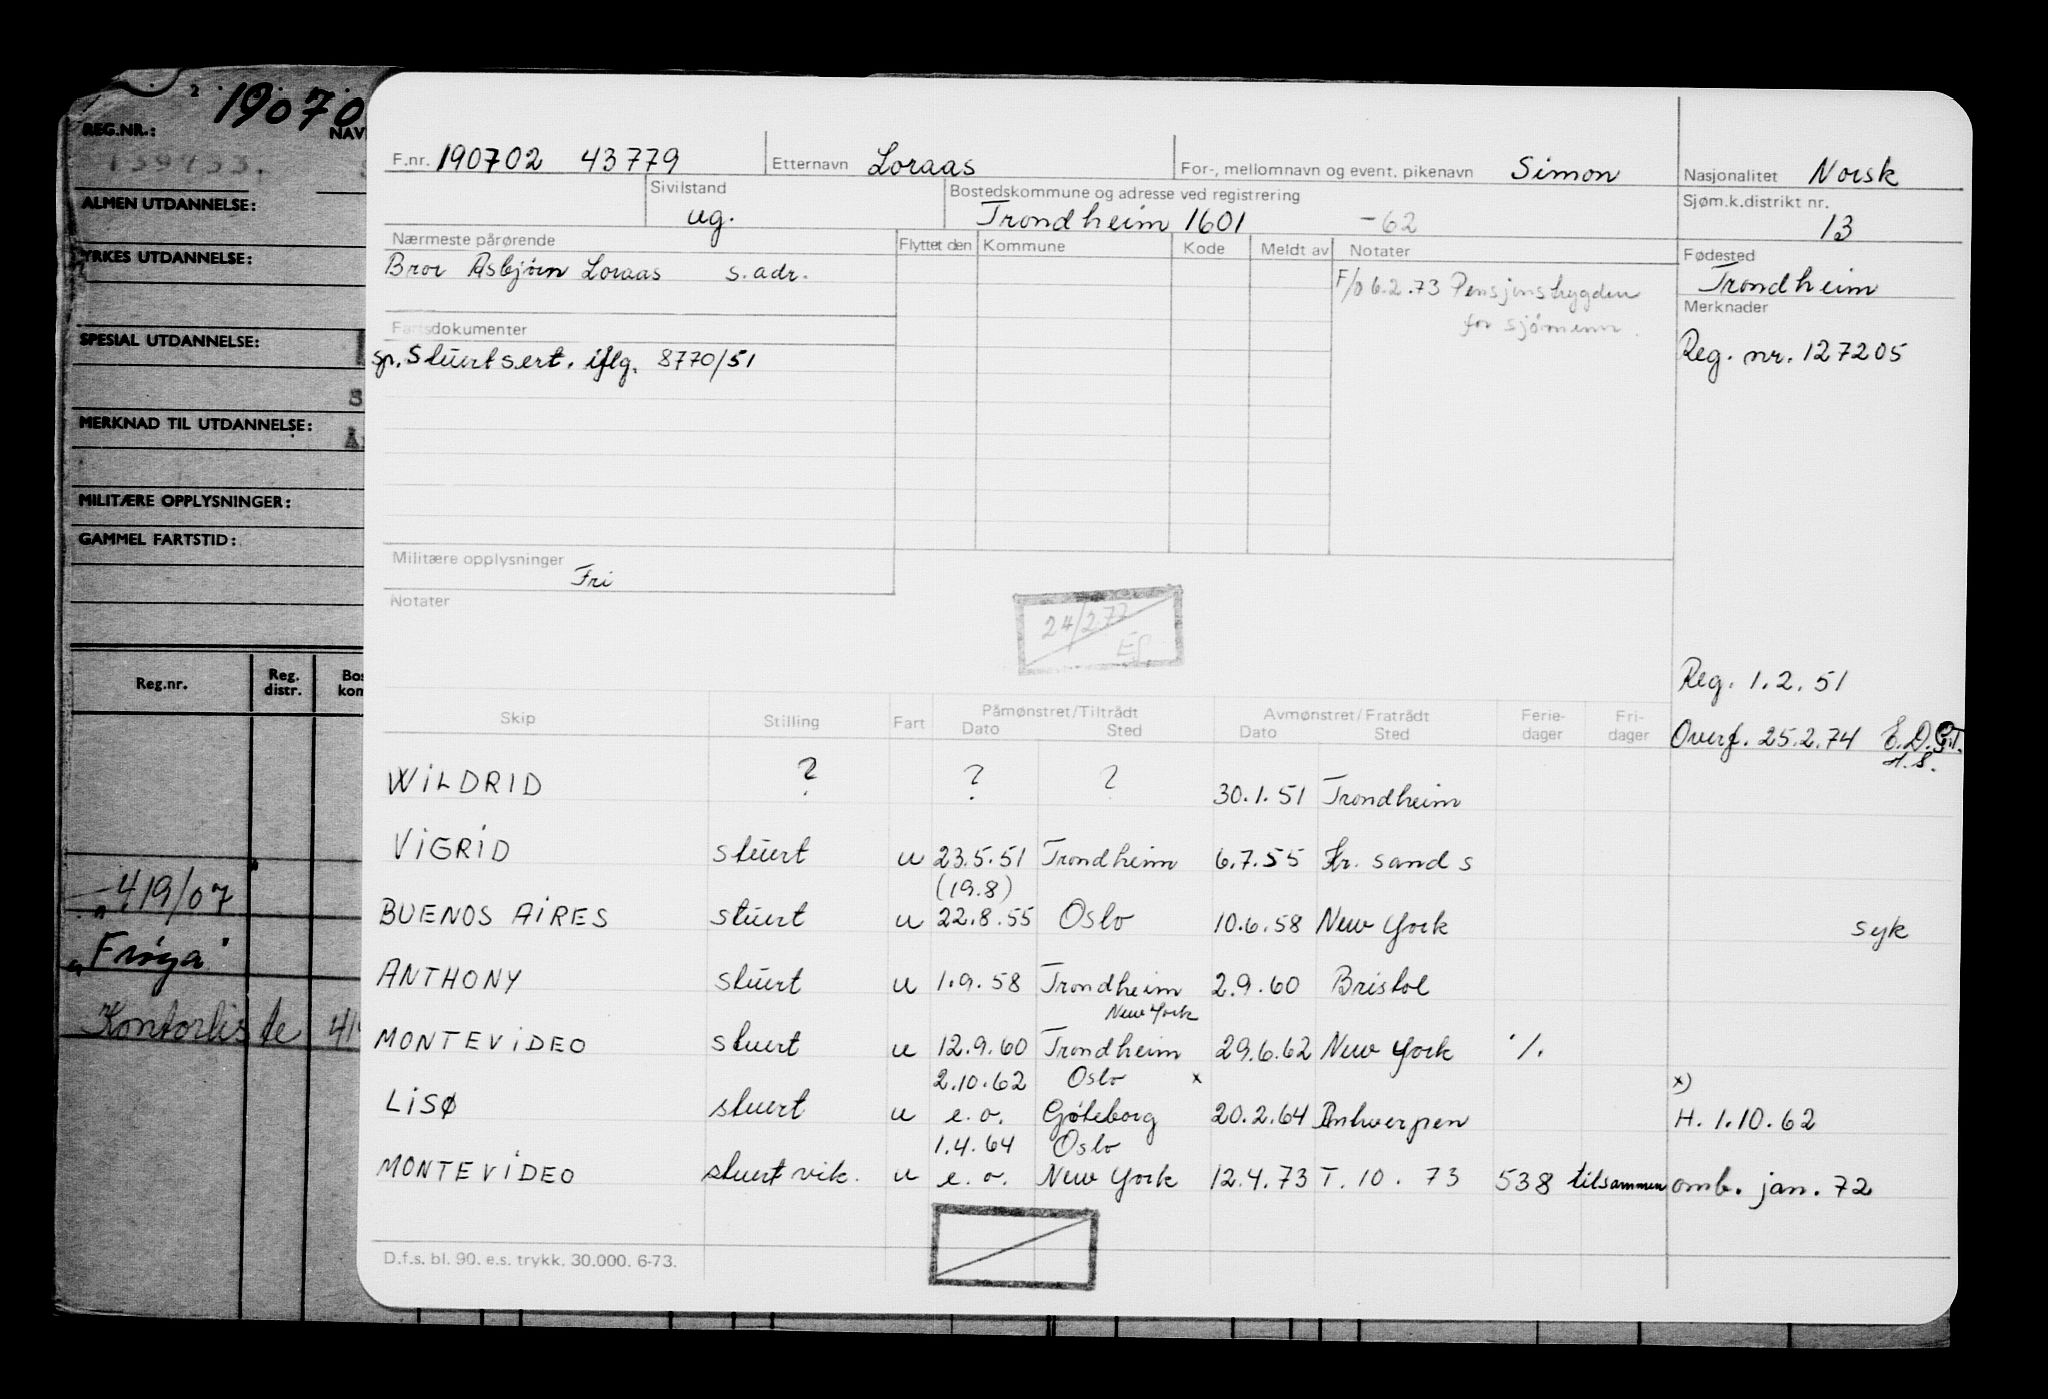 19070
REG.NR.:
NAV
ALMEN UTDANNELSE:
YRKES UTDANNELSE:
SPESIAL UTDANNELSE:
S
MERKNAD TIL UTDANNELSE:
MILITÆRE OPPLYSNINGER:
GAMMEL FARTSTID:
Reg.nr. Reg. distr. Bos kom
419/07
"Frøya"
Kontorliste 41
F.nr. 190702 43779 Etternavn Loraas For-, mellomnavn og event. pikenavn Simon Nasjonalitet Norsk
Sivilstand ug. Bostedskommune og adresse ved registrering Trondheim 1601 -62 Sjøm.k.distrikt nr. 13
Nærmeste pårørende Flyttet den Kommune Kode Meldt av Notater Fødested
Bror Asbjørn Loraas s. adr. F/o 6.2.73 Pensjonstrygden Trondheim
for sjømenn. Merknader
Fartsdokumenter Reg. nr. 127205
sp. Stuertsert. iflg. 8770/51
Militære opplysninger Fri
Notater
24/2 77
Reg. 1.2.51
Skip Stilling Fart Påmønstret/Tiltrådt Avmønstret/Fratrådt Ferie- Fri-
Dato Sted Dato Sted dager dager Overf. 25.2.74
H.S.
WILDRID ? ? ? 30.1.51 Trondheim
VIGRID stuert u 23.5.51 Trondheim 6.7.55 Kr. sand s
(19.8)
BUENOS AIRES stuert u 22.8.55 Oslo 10.6.58 New York syk
ANTHONY stuert u 1.9.58 Trondheim 2.9.60 Bristol
New York
MONTEVIDEO stuert u 12.9.60 Trondheim 29.6.62 New York ·/.
2.10.62 Oslo x x)
LISØ stuert u e.o. Göteborg 20.2.64 Antwerpen H. 1.10.62
1.4.64 Oslo
MONTEVIDEO stuert vik. u e.o. New York 12.4.73 T. 10. 73 538 tilsammen omb. jan. 72
D.f.s. bl. 90. e.s. trykk. 30.000. 6-73.